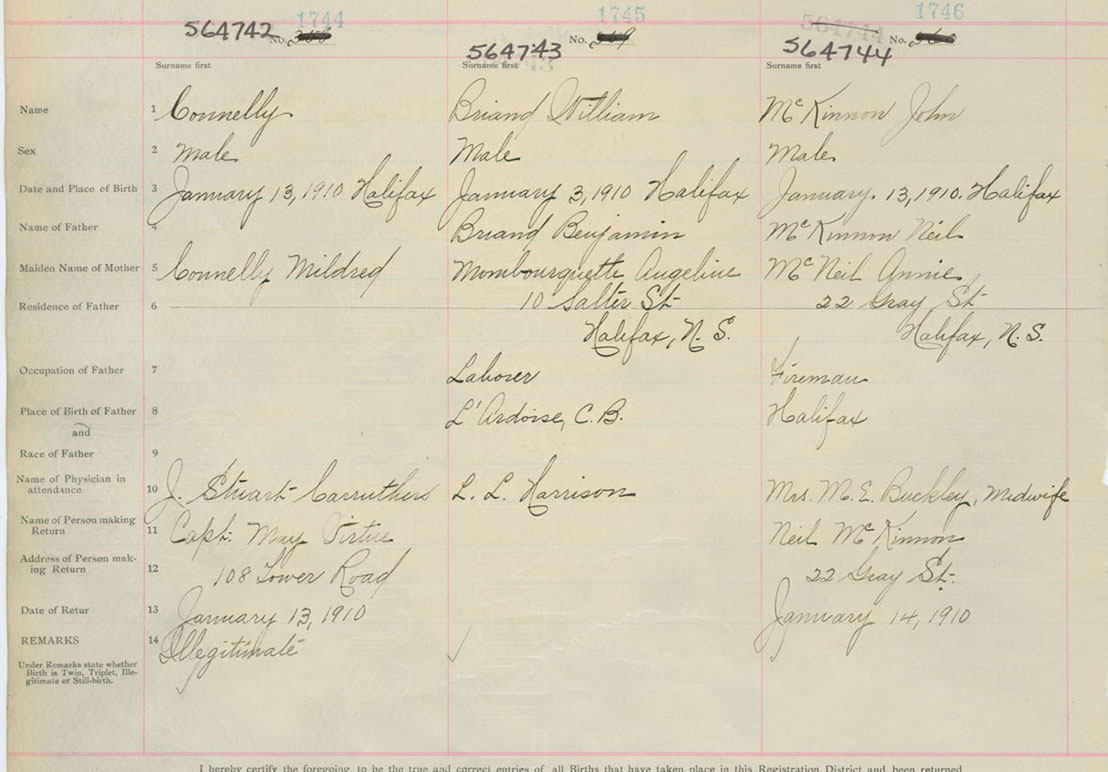 1744 1745 1746
564742 No. 564743 No. 564744 No.
Surname first Surname first Surname first
Name 1 Connelly Briand William McKinnon John
Sex 2 Male Male Male
Date and Place of Birth 3 January 13, 1910 Halifax January 3, 1910 Halifax January. 13, 1910. Halifax
Name of Father 4 Briand Benjamin McKinnon Neil
Maiden Name of Mother 5 Connelly Mildred Mombourquette Angeline McNeil Annie
Residence of Father 6 10 Salter St 22 Gray St
Halifax, N. S. Halifax, N. S.
Occupation of Father 7 Laborer Fireman
Place of Birth of Father 8 L'Ardoise, C. B. Halifax
and
Race of Father 9
Name of Physician in
attendance 10 J. Stuart Carruthers L. L. Harrison Mrs. M. E. Buckley, Midwife
Name of Person making
Return 11 Capt. May Virtue Neil McKinnon
Address of Person mak-
ing Return 12 108 Tower Road 22 Gray St.
Date of Retur 13 January 13, 1910 January 14, 1910
REMARKS 14 Illegitimate
Under Remarks state whether
Birth is Twin, Triplet, Ille-
gitimate or Still-birth.
I hereby certify the foregoing to be the true and correct entries of all Births that have taken place in this Registration District and been returned